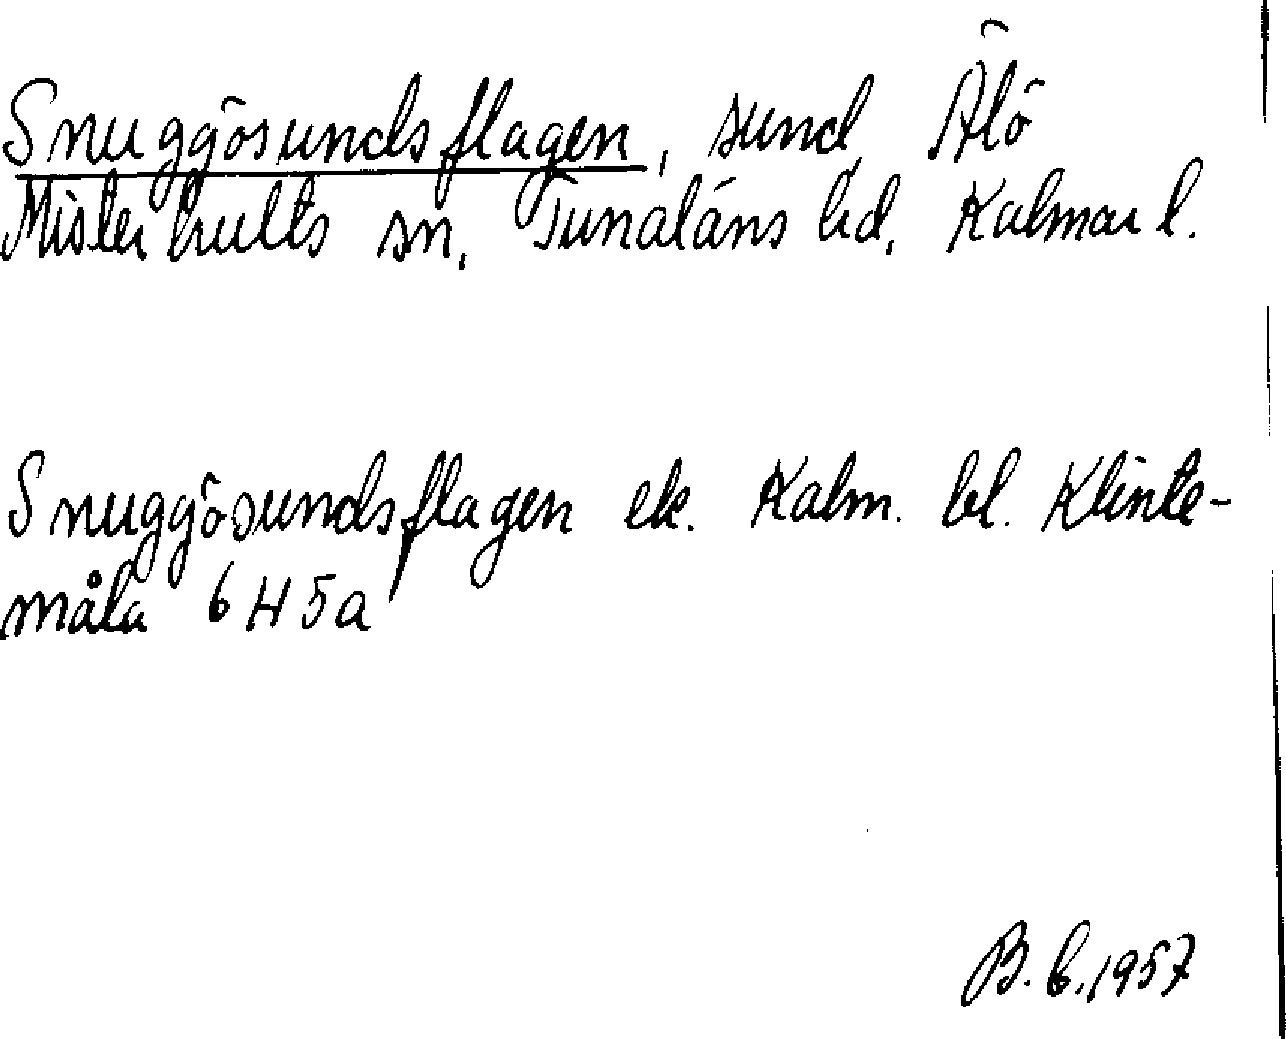 Snuggösundsflagen, sund, Älö
Misterhults sn, Tunaläns hd, Kalmar l.
Snuggösundsflagen ek. Kalm. bl. Klinte-
måla 6 H 5a
B. L. 1957